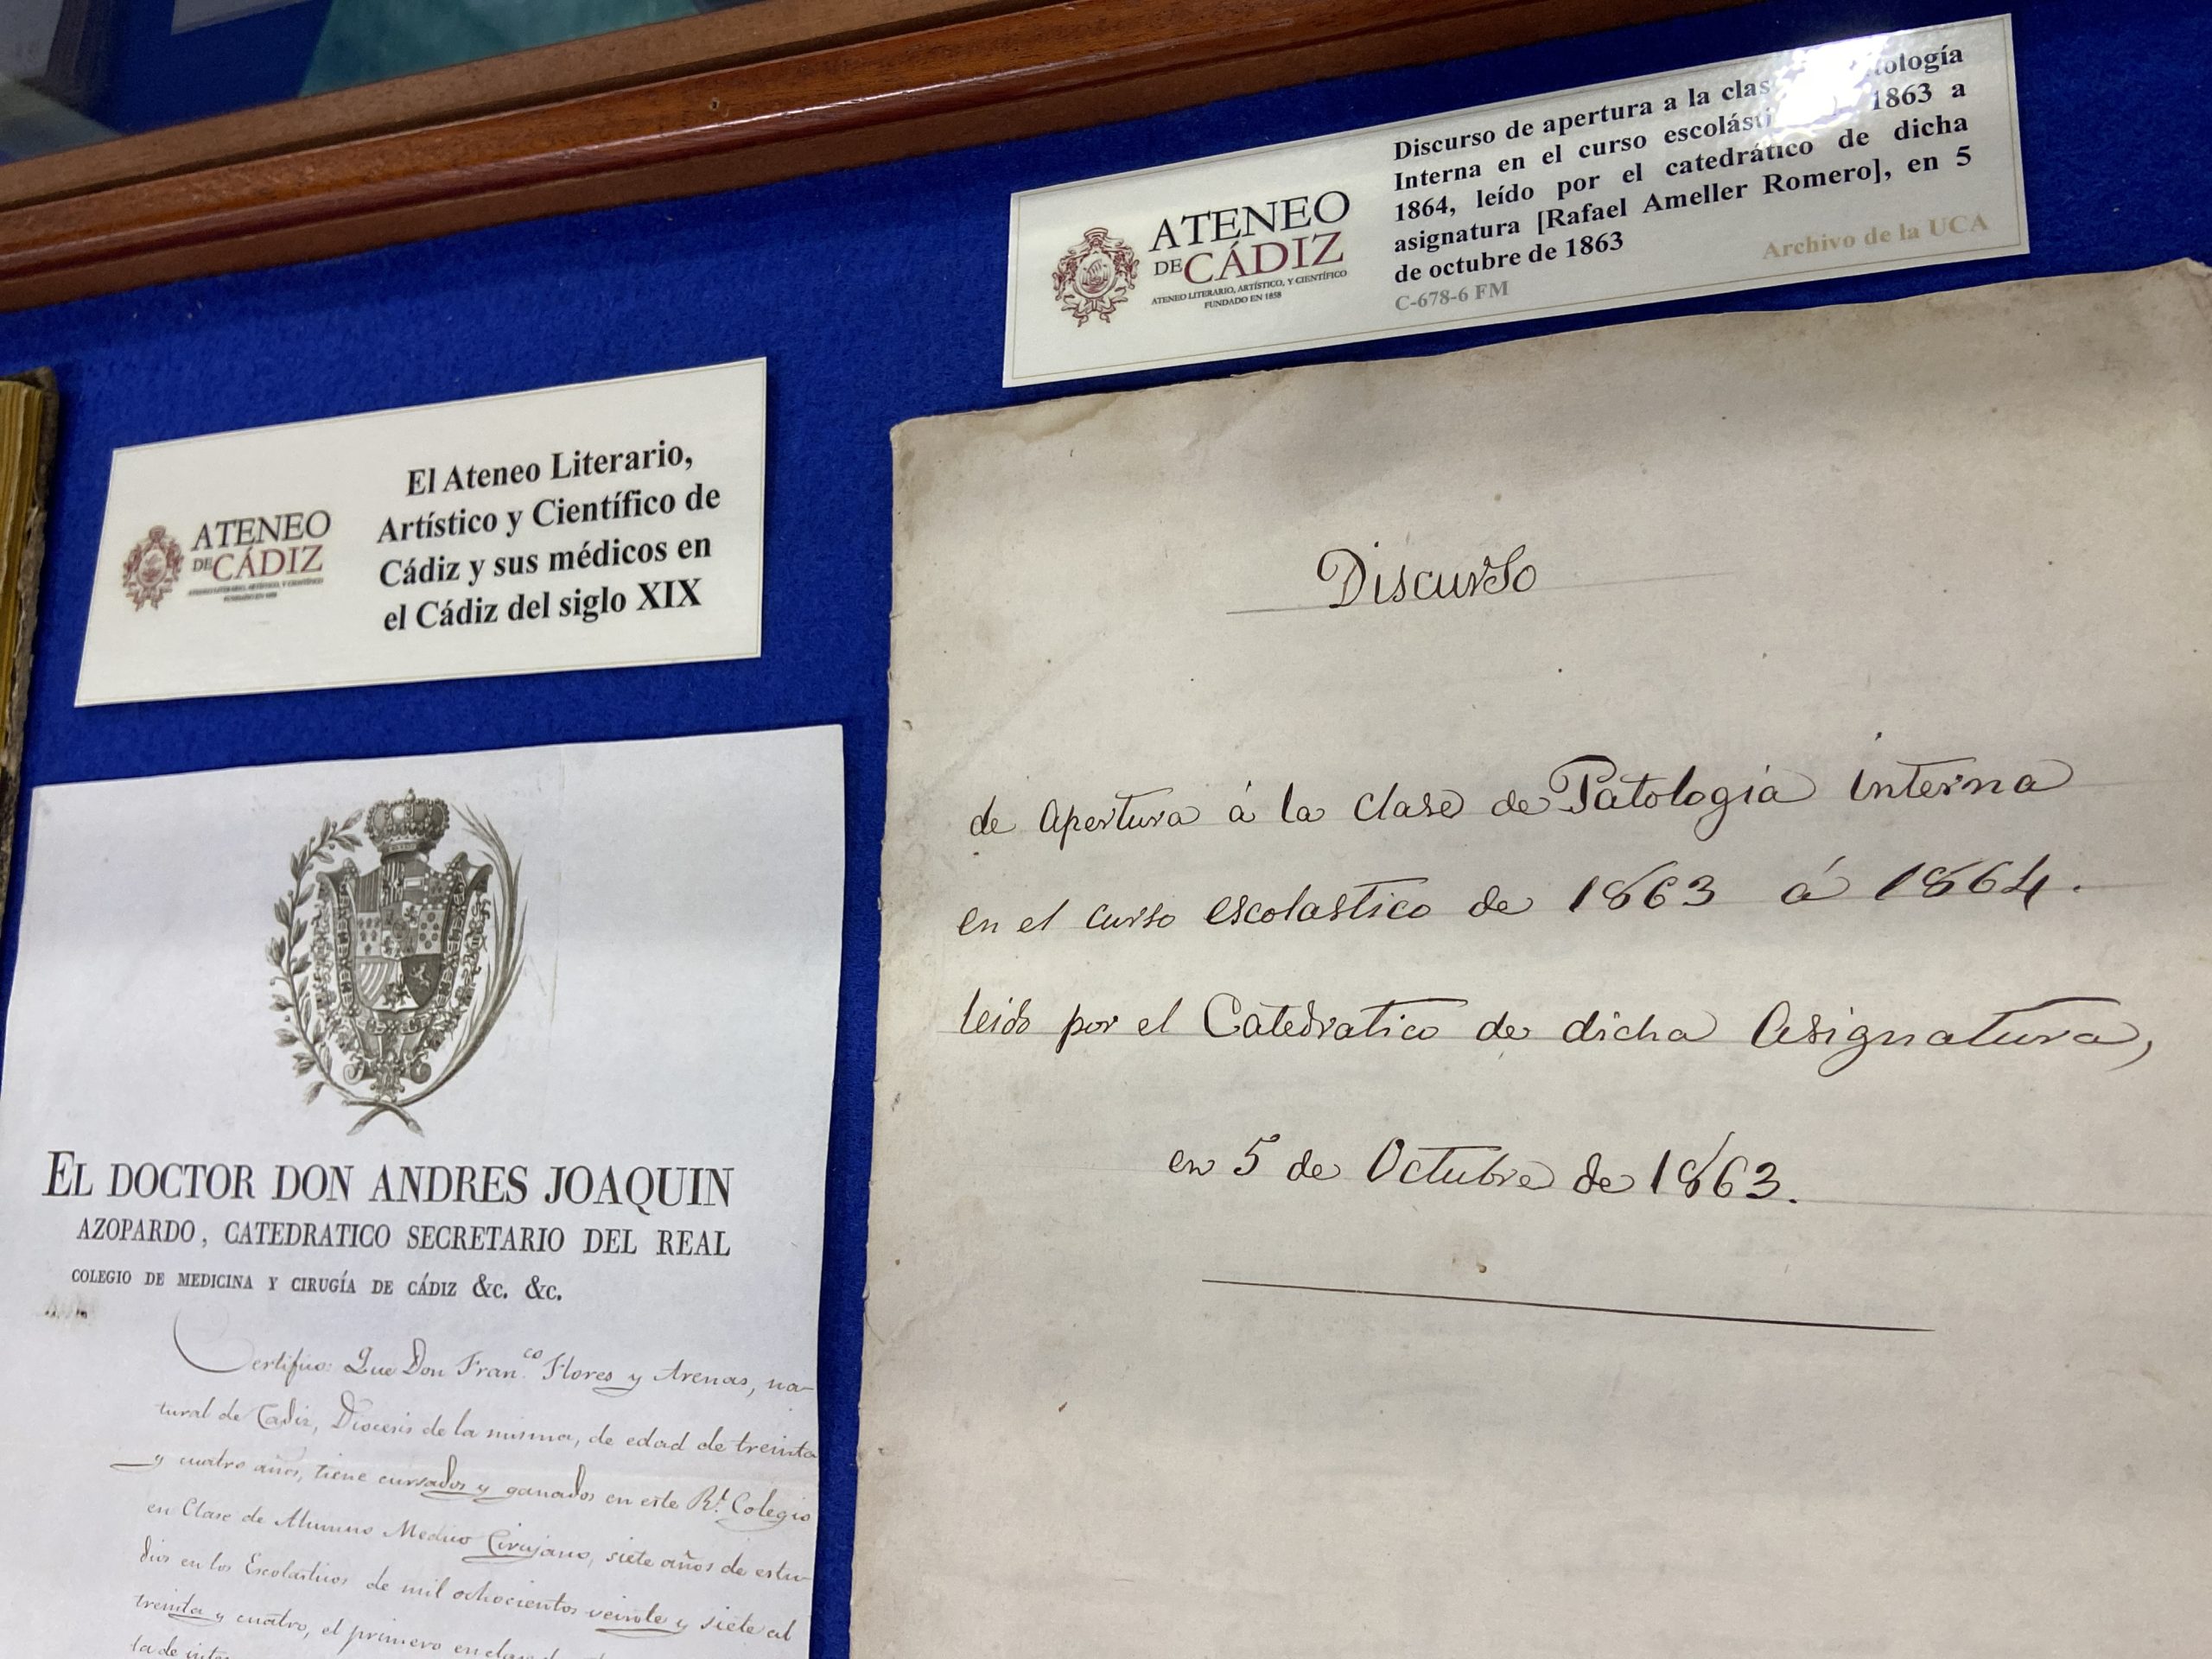 ATENEO
DE CÁDIZ
ATENEO LITERARIO, ARTÍSTICO, Y CIENTÍFICO
FUNDADO EN 1858
Discurso de apertura a la clas tología
Interna en el curso escolásti 1863 a
1864, leído por el catedrático de dicha
asignatura [Rafael Ameller Romero], en 5
de octubre de 1863
Archivo de la UCA
C-678-6 FM
ATENEO
DE CÁDIZ
ATENEO LITERARIO, ARTÍSTICO, Y CIENTÍFICO
FUNDADO EN 1858
El Ateneo Literario,
Artístico y Científico de
Cádiz y sus médicos en
el Cádiz del siglo XIX
Discurso
de apertura á la Clase de Patología interna
en el curso escolastico de 1863 á 1864.
leido por el Catedratico de dicha Asignatura,
en 5 de Octubre de 1863.
EL DOCTOR DON ANDRES JOAQUIN
AZOPARDO, CATEDRATICO SECRETARIO DEL REAL
COLEGIO DE MEDICINA Y CIRUGÍA DE CÁDIZ &c. &c.
Certifico: Que Don Fran.co Flores y Arenas, na-
tural de Cadiz, Diocesis de la misma, de edad de treinta
y cuatro años, tiene cursados y ganados en este Rl. Colegio
en Clase de Alumno Medico Cirujano, siete años de estu-
dios en los Escolasticos de mil ochocientos veinte y siete al
treinta y cuatro, el primero en clase
la de